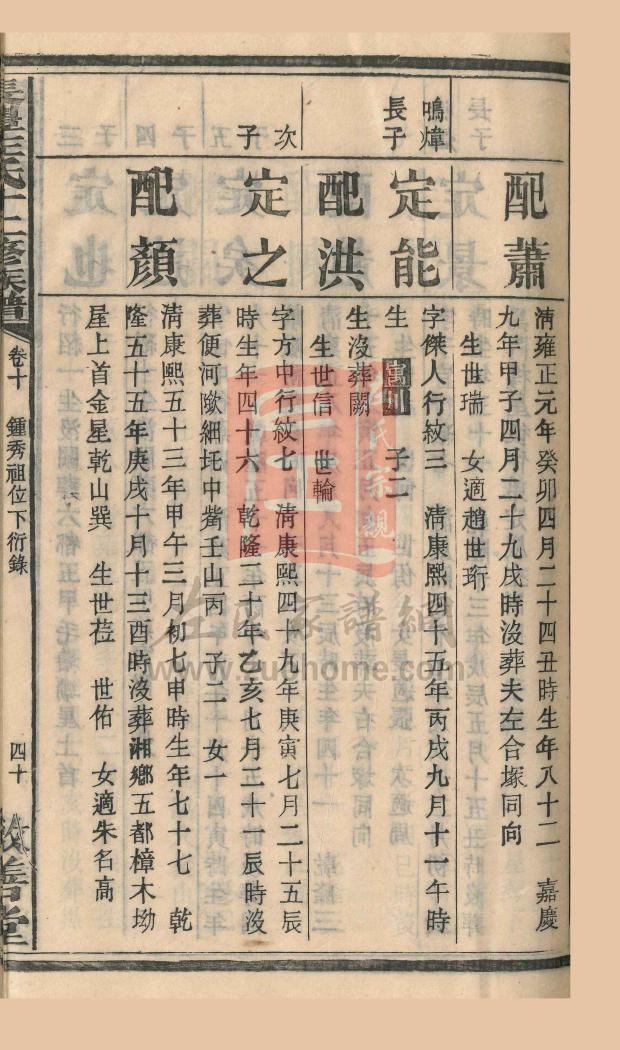 配蕭
清雍正元年癸卯四月二十四丑時生年八十二 嘉慶
九年甲子四月二十九戌時沒葬夫左合塚同向
生世瑞 女適趙世珩
鳴煒
長子
定能
字傑人行紋三 清康熙四十五年丙戌九月十一午時
生 寓川 子二
配洪
生沒葬闕
生世信 世輪
次
子
定之
字方中行紋七 清康熙四十九年庚寅七月二十五辰
時生年四十六 乾隆二十年乙亥七月二十一辰時沒
葬便河歐細圫中嘴壬山丙 子二 女一
配顏
清康熙五十三年甲午三月初七申時生年七十七 乾
隆五十五年庚戌十月十三酉時沒葬湘鄉五都樟木坳
屋上首金星乾山巽 生世莅 世佑 女適朱名高
氏十二修族譜 卷十 鍾秀祖位下衍錄 四十 善堂
家譜網
www.zuohome.com